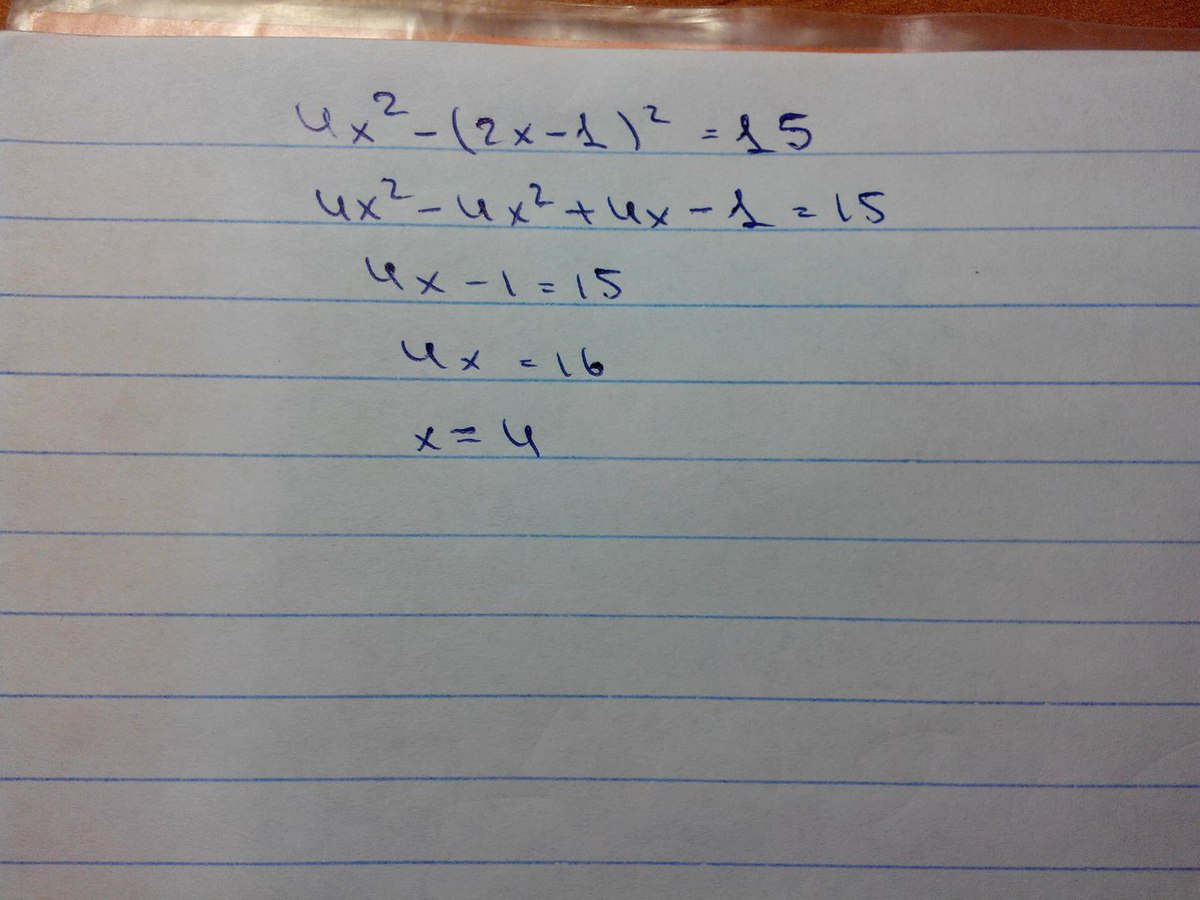 4x² - (2x - 1)² = 15
4x² - 4x² + 4x - 1 = 15
4x - 1 = 15
4x = 16
x = 4